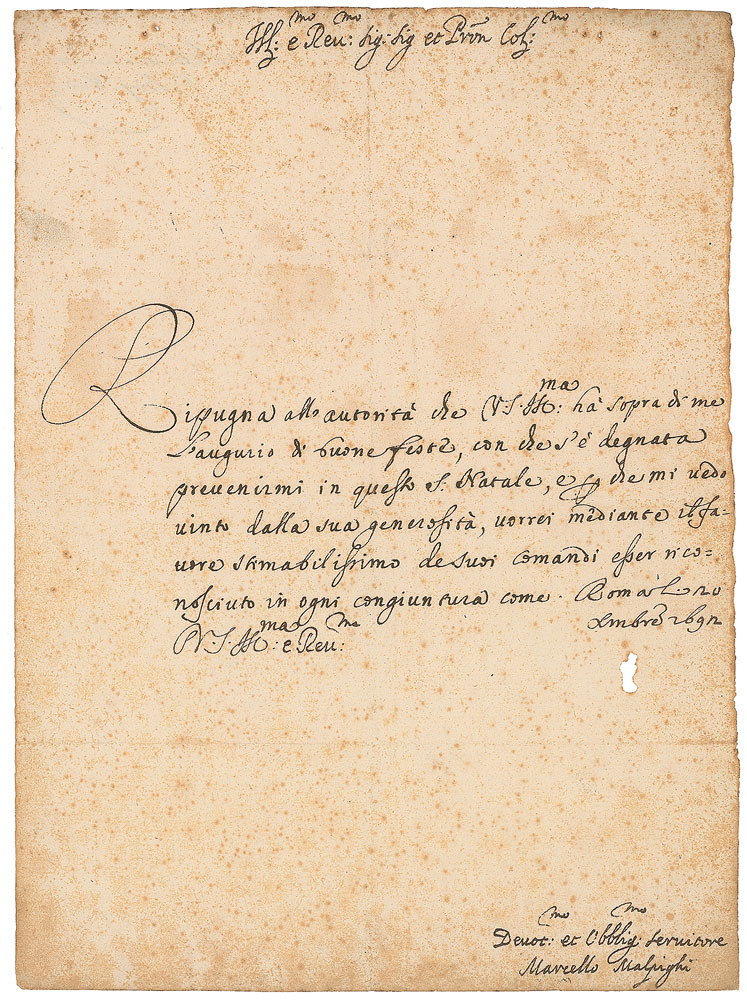 Ill:mo e Reu:mo sig: sig et Prōn Col:mo
Ripugna all'autorità che V.S. Ill:ma hà sopra di me
l'augurio di buone feste, con che s'è degnata
preuenirmi in questo S. Natale, e che mi uedo
uinto dalla sua generosità, uorrei mediante il fa-
uore stimabilissimo de suoi comandi esser rico-
nosciuto in ogni congiuntura come. Roma li 20
Xmbrē 1692
V.S. Ill:ma e Reu:ma
Deuot:mo et Obblig:mo seruitore
Marcello Malpighi